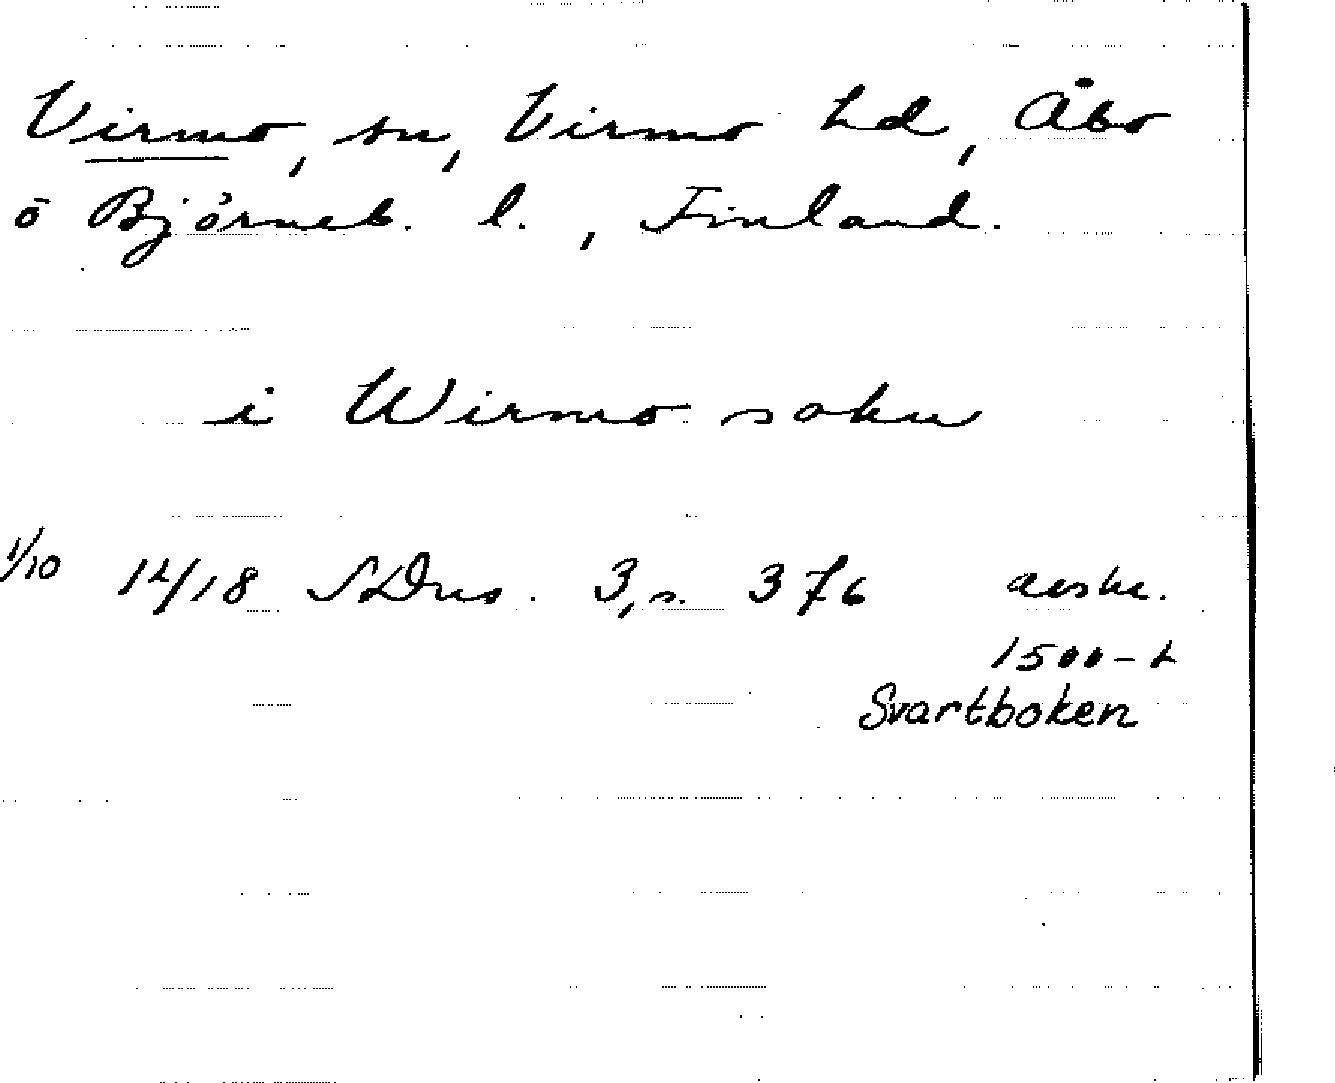 Virmo, sn, Virmo hd, Åbo
o Björneb. l., Finland.
i Wirmo sokn
1/10 1418 SDns. 3, s. 376 avskr.
1500-t
Svartboken